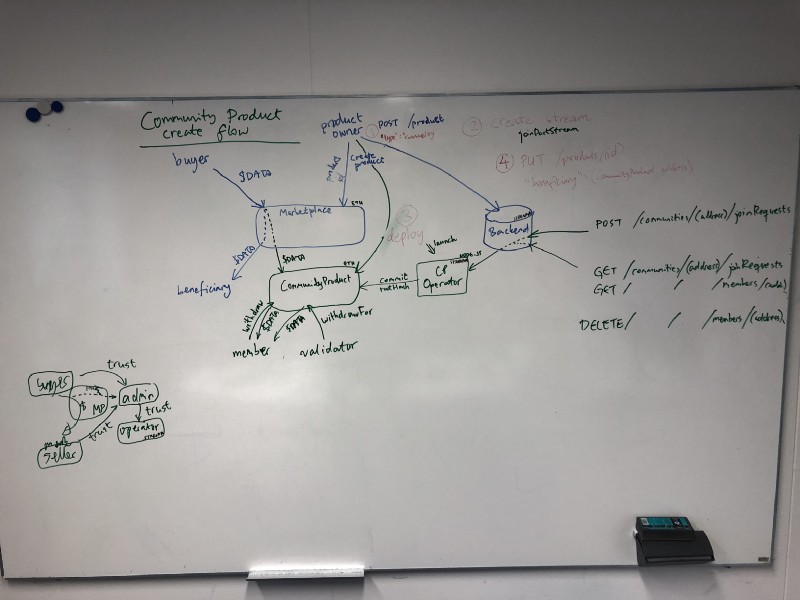 Community Product
create flow
product
owner
① POST /product
② create stream
joinPartStream
④ PUT /products/(id)
buyer
$DATA
create
product
ETH
Marketplace
③
deploy
Backend
POST /communities/(address)/joinRequests
$DATA
$DATA
launch
ETH
CP
Operator
beneficiary
CommunityProduct
commit
rootHash
GET /communities/(address)/joinRequests
GET / / /members/(addr)
withdraw
$DATA
$DATA
withdrawFor
member
validator
DELETE / / /members/(address)
trust
admin
$ MP
trust
trust
operator
seller